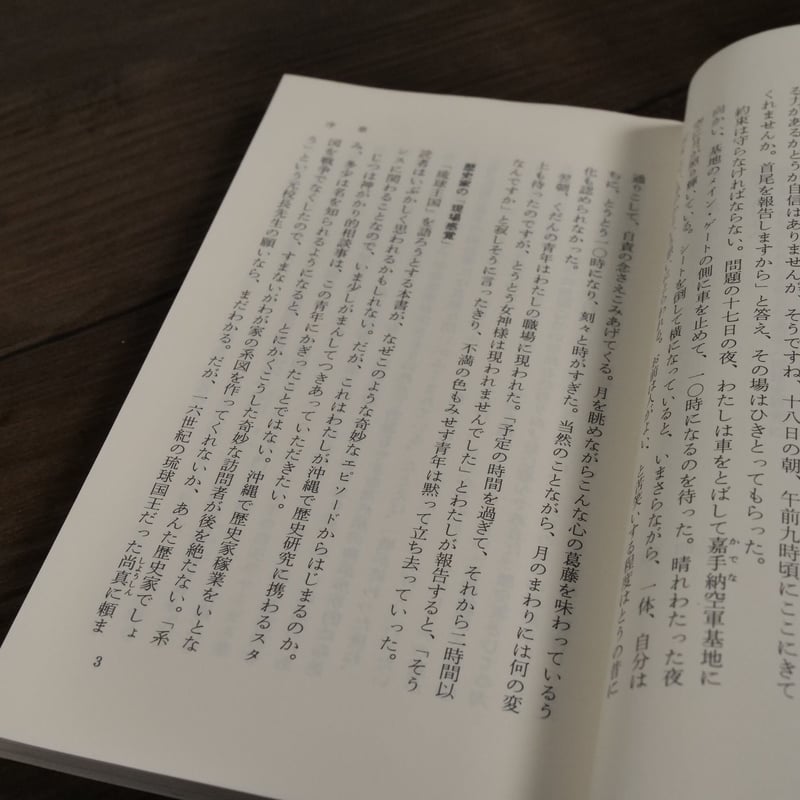 る力があるかどうか自信はありませんが、そうですね、十八日の朝、午前九時頃にここにきて
くれませんか。首尾を報告しますから」と答え、その場はひきとってもらった。
約束は守らなければならない。問題の十七日の夜、わたしは車をとばして嘉手納空軍基地に
かでな
向かい、基地のメイン・ゲートの側に車を止めて、一〇時になるのを待った。晴れわたった夜
シートを倒して横になっていると、いまさらながら、一体、自分は
程度はとうの昔に
過りこして、自責の念さえこみあげてくる。月を眺めながらこんな心の葛藤を味わっているう
ちに、とうとう一〇時になり、刻々と時がすぎた。当然のことながら、月のまわりには何の変
化も認められなかった。
翌朝、くだんの青年はわたしの職場に現われた。「予定の時間を過ぎて、それから二時間以
上も待ったのですが、とうとう女神様は現われませんでした」とわたしが報告すると、「そう
なんですか」と寂しそうに言ったきり、不満の色もみせず青年は黙って立ち去っていった。
歴史家の「現場感覚」
「琉球王国」を語ろうとする本書が、なぜこのような奇妙なエピソードからはじまるのか。
読者はいぶかしく思われるかもしれない。だが、これはわたしが沖縄で歴史研究に携わるスタ
ンスに関わることなので、いま少しがまんしてつきあっていただきたい。
じつは神がかり的相談事は、この青年にかぎったことではない。沖縄で歴史家稼業をいとな
み、多少は名を知られるようになると、とにかくこうした奇妙な訪問者が後を絶たない。「系
図を戦争でなくしたので、すまないがわが家の系図を作ってくれないか、あんた歴史家でしょ
う」という元校長先生の願いなら、まだわかる。だが、一六世紀の琉球国王だった尚真に頼ま
しょうしん
序 章
3